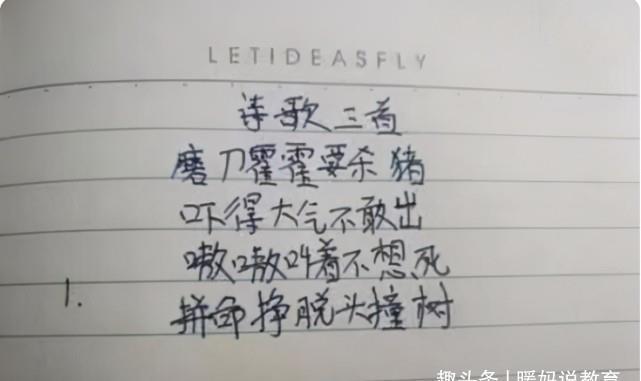 LETIDEASFLY
诗歌三首
磨刀霍霍要杀猪
吓得大气不敢出
嗷嗷叫着不想死
1.
拼命挣脱头撞树
趣头条 | 暖妈说教育